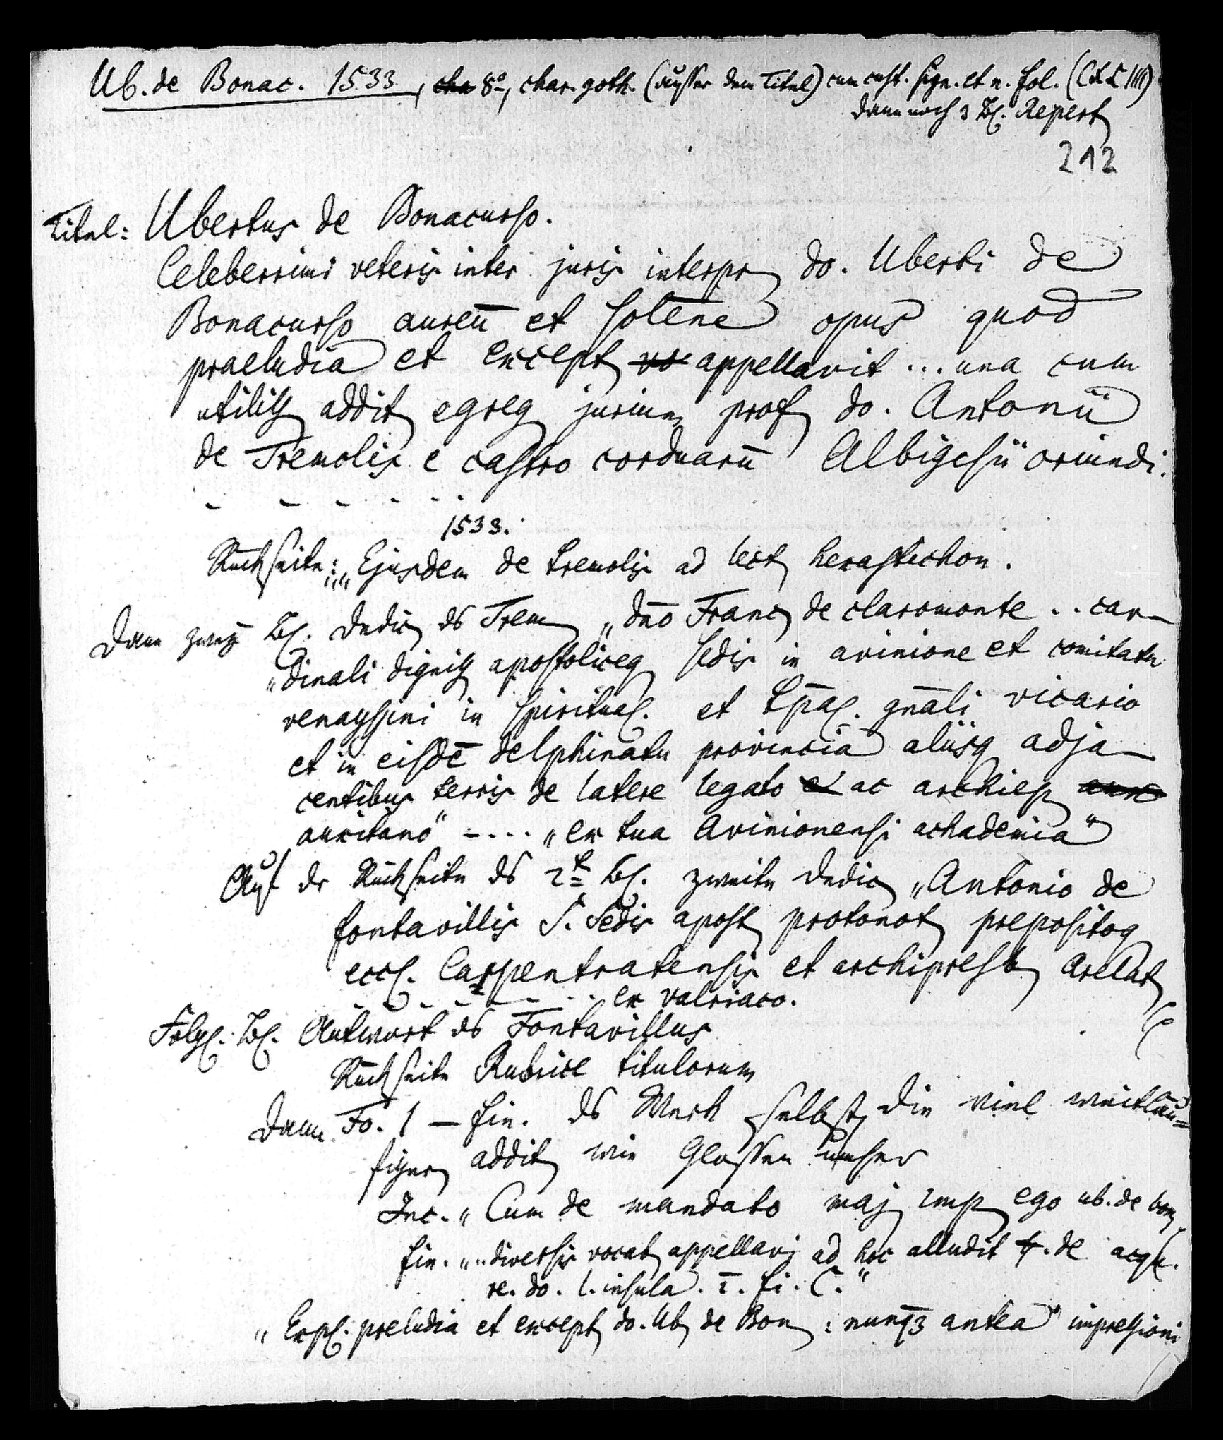 Ub. de Bonac. 1533, cha 8°, char. goth. (ausser dem Titel) cum cust. sign. et n. fol. (CLLIII)
dann noch 3 Bl. Repert
212
Titel: Ubertus de Bonacurso.
Celeberrimi veteris inter juris interpr do. Uberti de
Bonacurso aureū et solēne opus quod
praeludia et except vo appellavit ... una cum
utilis addit egreg jurium prof do. Antonii
de Tremolis e castro corduarū Albigesii oriundi.
1533.
Rückseite: „Ejusdem de tremolis ad lect hexastichon.
Dann zwey Bl. Dedic ds Trem „dno Franc de claromonte .. car-
„dinali digniss apostoliceq sedis in avinione et comitatu
venayssini in spiritual. et tp̄al. gn̄ali vicario
et in eisdē delphinatu provincia aliisq adja-
centibus terris de latere legato et ac archiep aux
auxitano" - .... „ex tua Avinionensi achademia"
Auf der Rückseite ds 2t Bl. zweite Dedic „Antonio de
fontavillis S. Sedis apost protonot prepositoq
eccl. Carpentratensis et archipresb Arelat
ex valriaco.
Folg. Bl. Antwort ds Fontavillus
Rückseite Rubrice titulorum
Dann Fo. 1 - fin. ds Werk selbst, die viel weitläu=
figer addit wie Glossen umher
Inc. „Cum de mandato maj imp ego ub. de bon,
fin. „..diversis vocab appellari ad hoc alludit ff. de acq.
re. do. l. insula. ī. fi. C."
„Expl. preludia et except do. Ub de Bon : nunq3 antea" impressioni